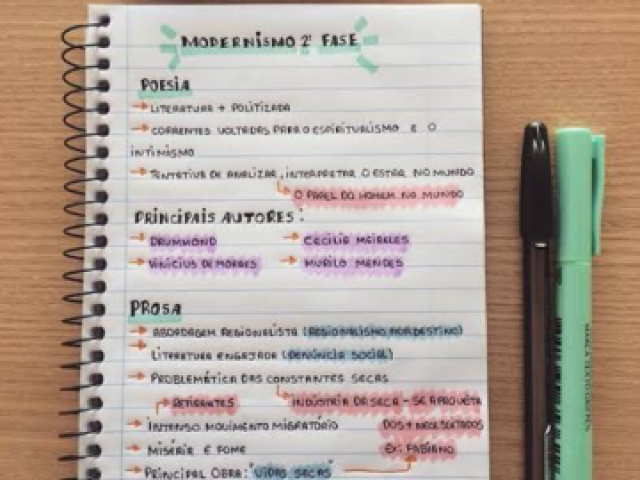 MODERNISMO 2ª FASE
POESIA
→ LITERATURA + POLITIZADA
→ CORRENTES VOLTADAS PARA O ESPIRITUALISMO E O
INTIMISMO
→ TENTATIVA DE ANALIZAR, INTERPRETAR O ESTAR NO MUNDO
↳ O PAPEL DO HOMEM NO MUNDO
PRINCIPAIS AUTORES:
→ DRUMMOND → CECÍLIA MEIRELES
→ VINÍCIUS DE MORAES → MURILO MENDES
PROSA
→ ABORDAGEM REGIONALISTA (REGIONALISMO NORDESTINO)
→ LITERATURA ENGAJADA (DENÚNCIA SOCIAL)
→ PROBLEMÁTICA DAS CONSTANTES SECAS
RETIRANTES ↳ INDÚSTRIA DA SECA - SE APROVEITA
→ INTENSO MOVIMENTO MIGRATÓRIO DOS + NECESSITADOS
→ MISÉRIA E FOME EX: FABIANO
→ PRINCIPAL OBRA: "VIDAS SECAS"